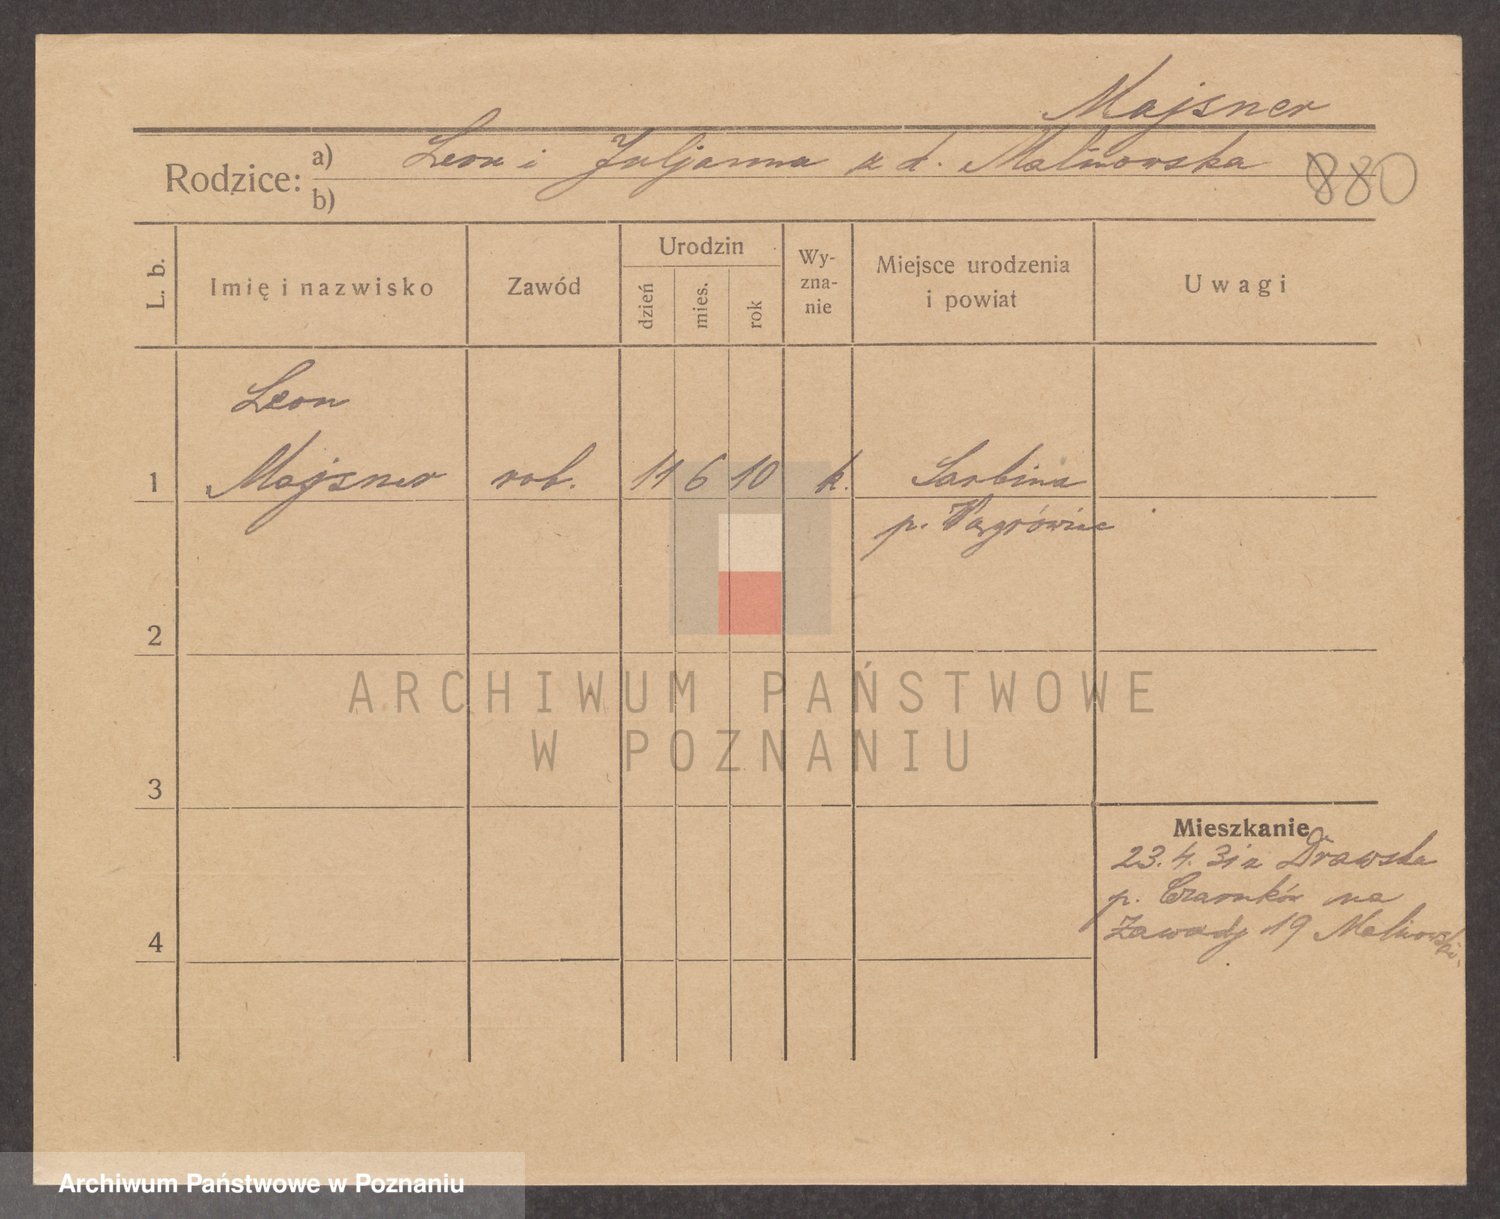 Majsner
Rodzice: a) Leon i Juljanna z d. Malinowska 880
b)
L. b. Imię i nazwisko Zawód Urodzin dzień mies. rok Wy-zna-nie Miejsce urodzenia i powiat Uwagi
Leon
1 Majsner rob. 11 6 10 k. Sarbina
p. Wągrówiec
2
ARCHIWUM PAŃSTWOWE
W POZNANIU
3
Mieszkanie
23.4.31 z Drawska
p. Czarnków na
Zawady 19 Malinowski
4
Archiwum Państwowe w Poznaniu